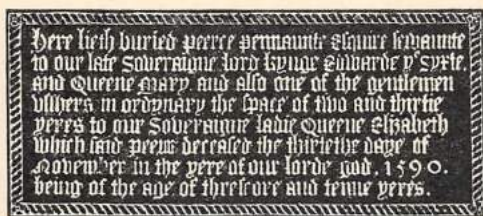 Here lieth buried peerce pennaunte Esquire servaunte
to our late Soveraigne lord kynge Edwarde yᵉ Syxte,
and Queene Mary, and also one of the gentlemen
vsshers in ordynary the space of two and thirtie
yeres to our Soveraigne ladie Queene Elizabeth
which said peers deceased the thirtethe daye of
November in the yere of our lorde god, 1590.
being of the age of threscore and tenne yeres.